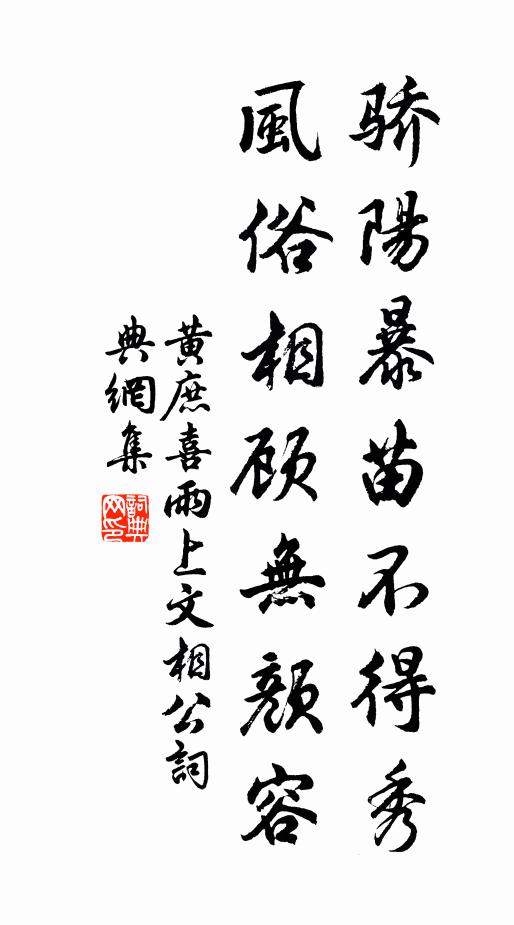 骄陽暴苗不得秀
風俗相顾無顔容
黄庶喜雨上文相公詞
典網集
詞典网印